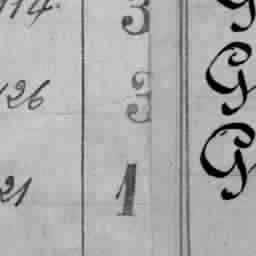 114. 3 G
126 3 G
21 1 G